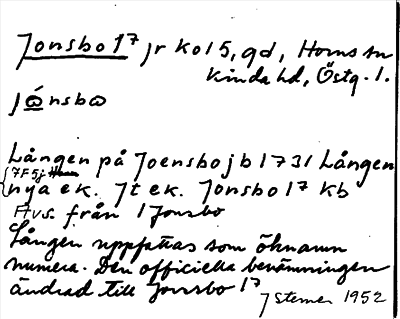 Jonsbo 1⁷ jr ko 15, gd, Horns sn
Kinda hd, Östg. l.
jώnsbω
Lången på Joensbo jb 1731 Lången
7F5j
nya ek. Jt ek. Jonsbo 1⁷ kb
Avs. från 1 Jonsbo
Lången uppfattas som öknamn
numera. Den officiella benämningen
ändrad till Jonsbo 1⁷
J Sterner 1952